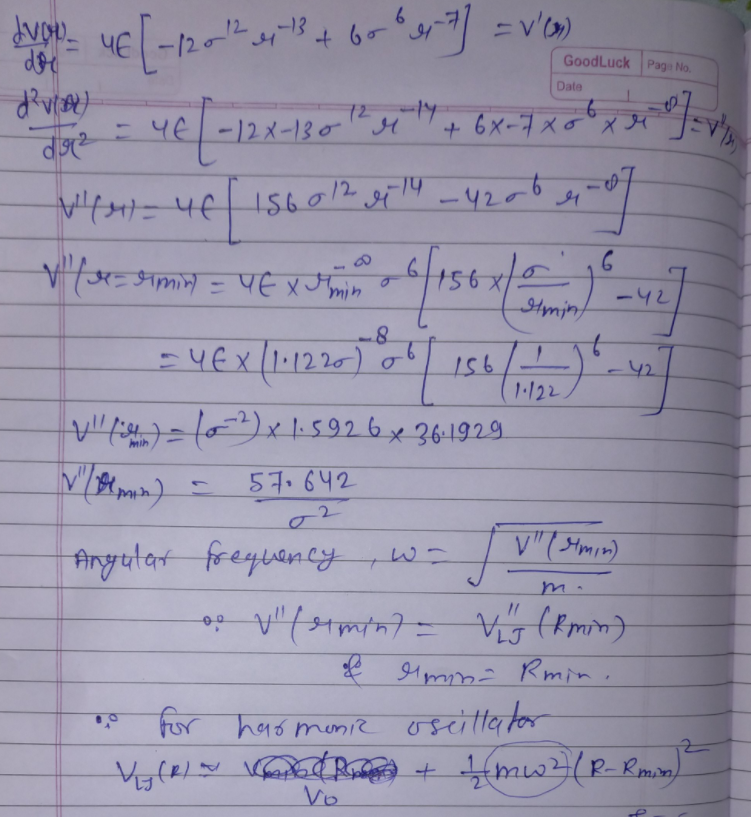 dV(r)/dr = 4ϵ[-12σ^12 r^-13 + 6σ^6 r^-7] = V'(r)
GoodLuck Page No.
Date
d²V(r)/dr² = 4ϵ[-12x-13σ^12 r^-14 + 6x-7xσ^6 x r^-8] = V''(r)
V''(r) = 4ϵ[156σ^12 r^-14 - 42σ^6 r^-8]
V''(r=rmin) = 4ϵ x rmin^-8 σ^6 [156 x (σ/rmin)^6 - 42]
= 4ϵ x (1.122σ)^-8 σ^6 [156 (1/1.122)^6 - 42]
V''(rmin) = (σ^-2) x 1.5926 x 36.1929
V''(rmin) = 57.642/σ²
Angular frequency, ω = √(V''(rmin)/m.)
∵ V''(rmin) = V''LJ (Rmin)
& rmin = Rmin.
∵ for harmonic oscillator
VLJ(R) ≈ V0 + 1/2 mω² (R-Rmin)²